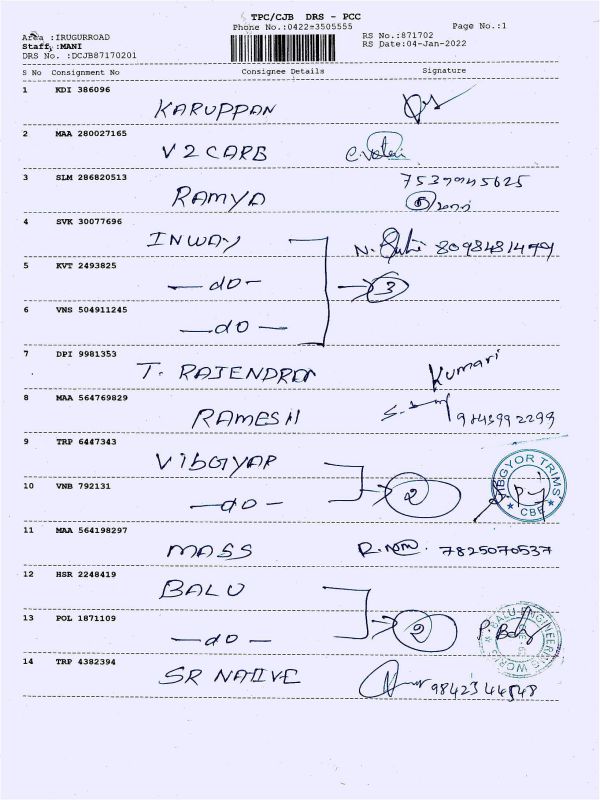 TPC/CJB DRS - PCC
Phone No.:0422-3505555
Page No.:1
Area :IRUGURROAD
Staff :MANI
DRS No. :DCJB87170201
RS No.:871702
RS Date:04-Jan-2022
S No Consignment No Consignee Details Signature
1 KDI 386096
KARUPPAN
2 MAA 280027165
V2 CARE
3 SLM 286820513
RAMYA
4 SVK 30077696
INWAY
N.
5 KVT 2493825
- do -
3
6 VNS 504911245
- do -
7 DPI 9981353
T. RAJENDRAN
Kumari
8 MAA 564769829
RAMESH
9843992299
9 TRP 6447343
VIBGYAR
10 VNB 792131
- do -
2
VIBGYOR TRIMS
CBE
11 MAA 564198297
MASS
7825070537
12 HSR 2248419
BALU
13 POL 1871109
- do -
2
BALU ENGINEERING WORKS
14 TRP 4382394
SR NATIVE
9842344548